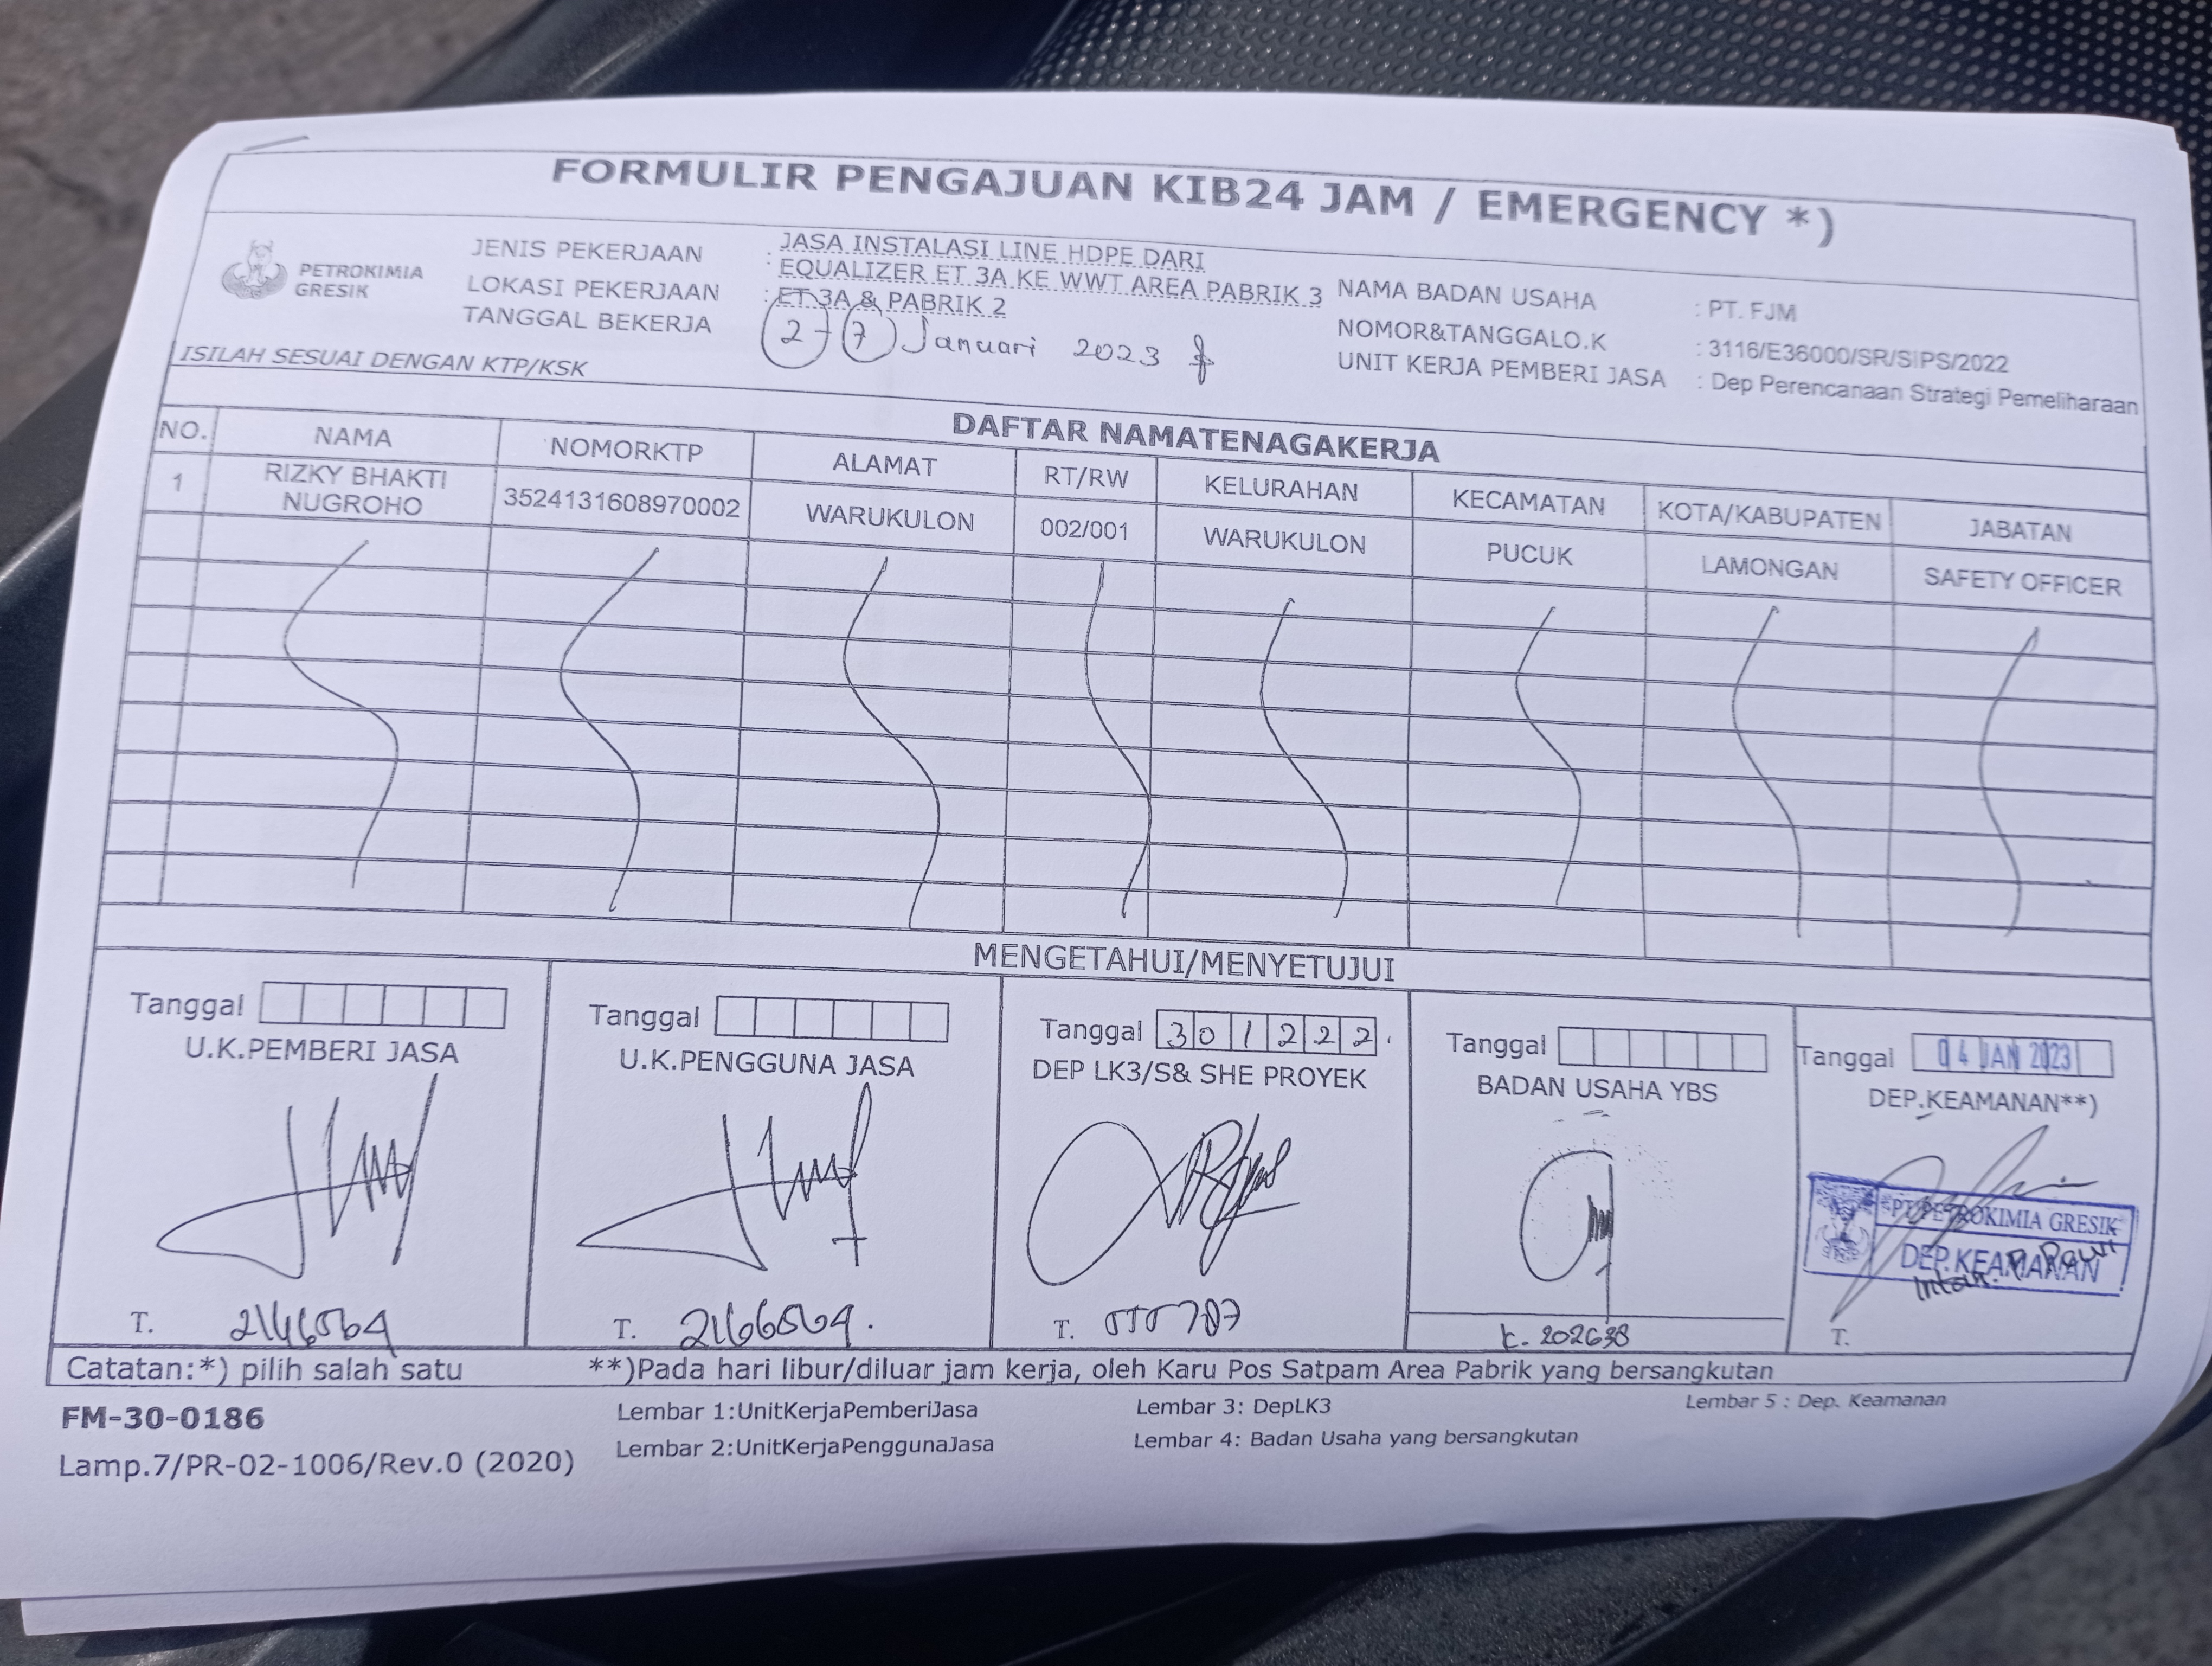 FORMULIR PENGAJUAN KIB24 JAM / EMERGENCY *)
PETROKIMIA
GRESIK
JENIS PEKERJAAN : JASA INSTALASI LINE HDPE DARI
EQUALIZER ET 3A KE WWT AREA PABRIK 3
LOKASI PEKERJAAN : ET 3A & PABRIK 2
TANGGAL BEKERJA 2-7 Januari 2023
NAMA BADAN USAHA : PT. FJM
NOMOR&TANGGALO.K : 3116/E36000/SR/SIPS/2022
UNIT KERJA PEMBERI JASA : Dep Perencanaan Strategi Pemeliharaan
ISILAH SESUAI DENGAN KTP/KSK
DAFTAR NAMATENAGAKERJA
NO. NAMA NOMORKTP ALAMAT RT/RW KELURAHAN KECAMATAN KOTA/KABUPATEN JABATAN
1 RIZKY BHAKTI NUGROHO 3524131608970002 WARUKULON 002/001 WARUKULON PUCUK LAMONGAN SAFETY OFFICER
MENGETAHUI/MENYETUJUI
Tanggal
U.K.PEMBERI JASA
T.
Tanggal
U.K.PENGGUNA JASA
T.
Tanggal 30/222
DEP LK3/S& SHE PROYEK
T.
Tanggal
BADAN USAHA YBS
t. 202698
Tanggal 04 JAN 2023
DEP.KEAMANAN**)
PT PETROKIMIA GRESIK
DEP.KEAMANAN
T.
Catatan:*) pilih salah satu **)Pada hari libur/diluar jam kerja, oleh Karu Pos Satpam Area Pabrik yang bersangkutan
FM-30-0186
Lamp.7/PR-02-1006/Rev.0 (2020)
Lembar 1:UnitKerjaPemberiJasa
Lembar 2:UnitKerjaPenggunaJasa
Lembar 3: DepLK3
Lembar 4: Badan Usaha yang bersangkutan
Lembar 5 : Dep. Keamanan